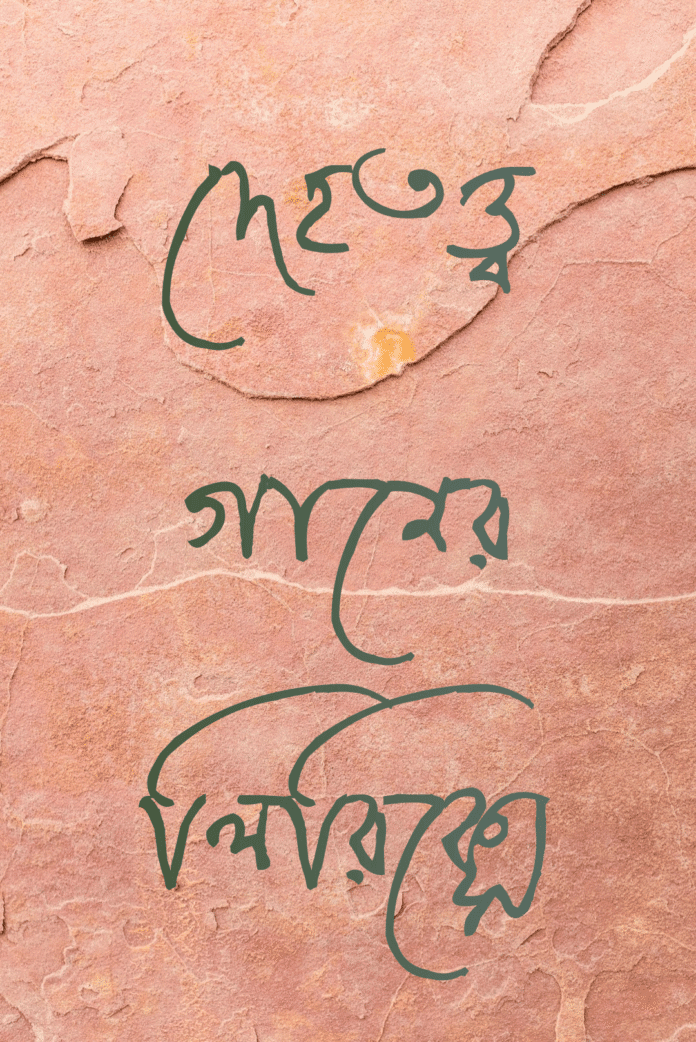 দেহতত্ত্ব
গানের
লিরিক্সে